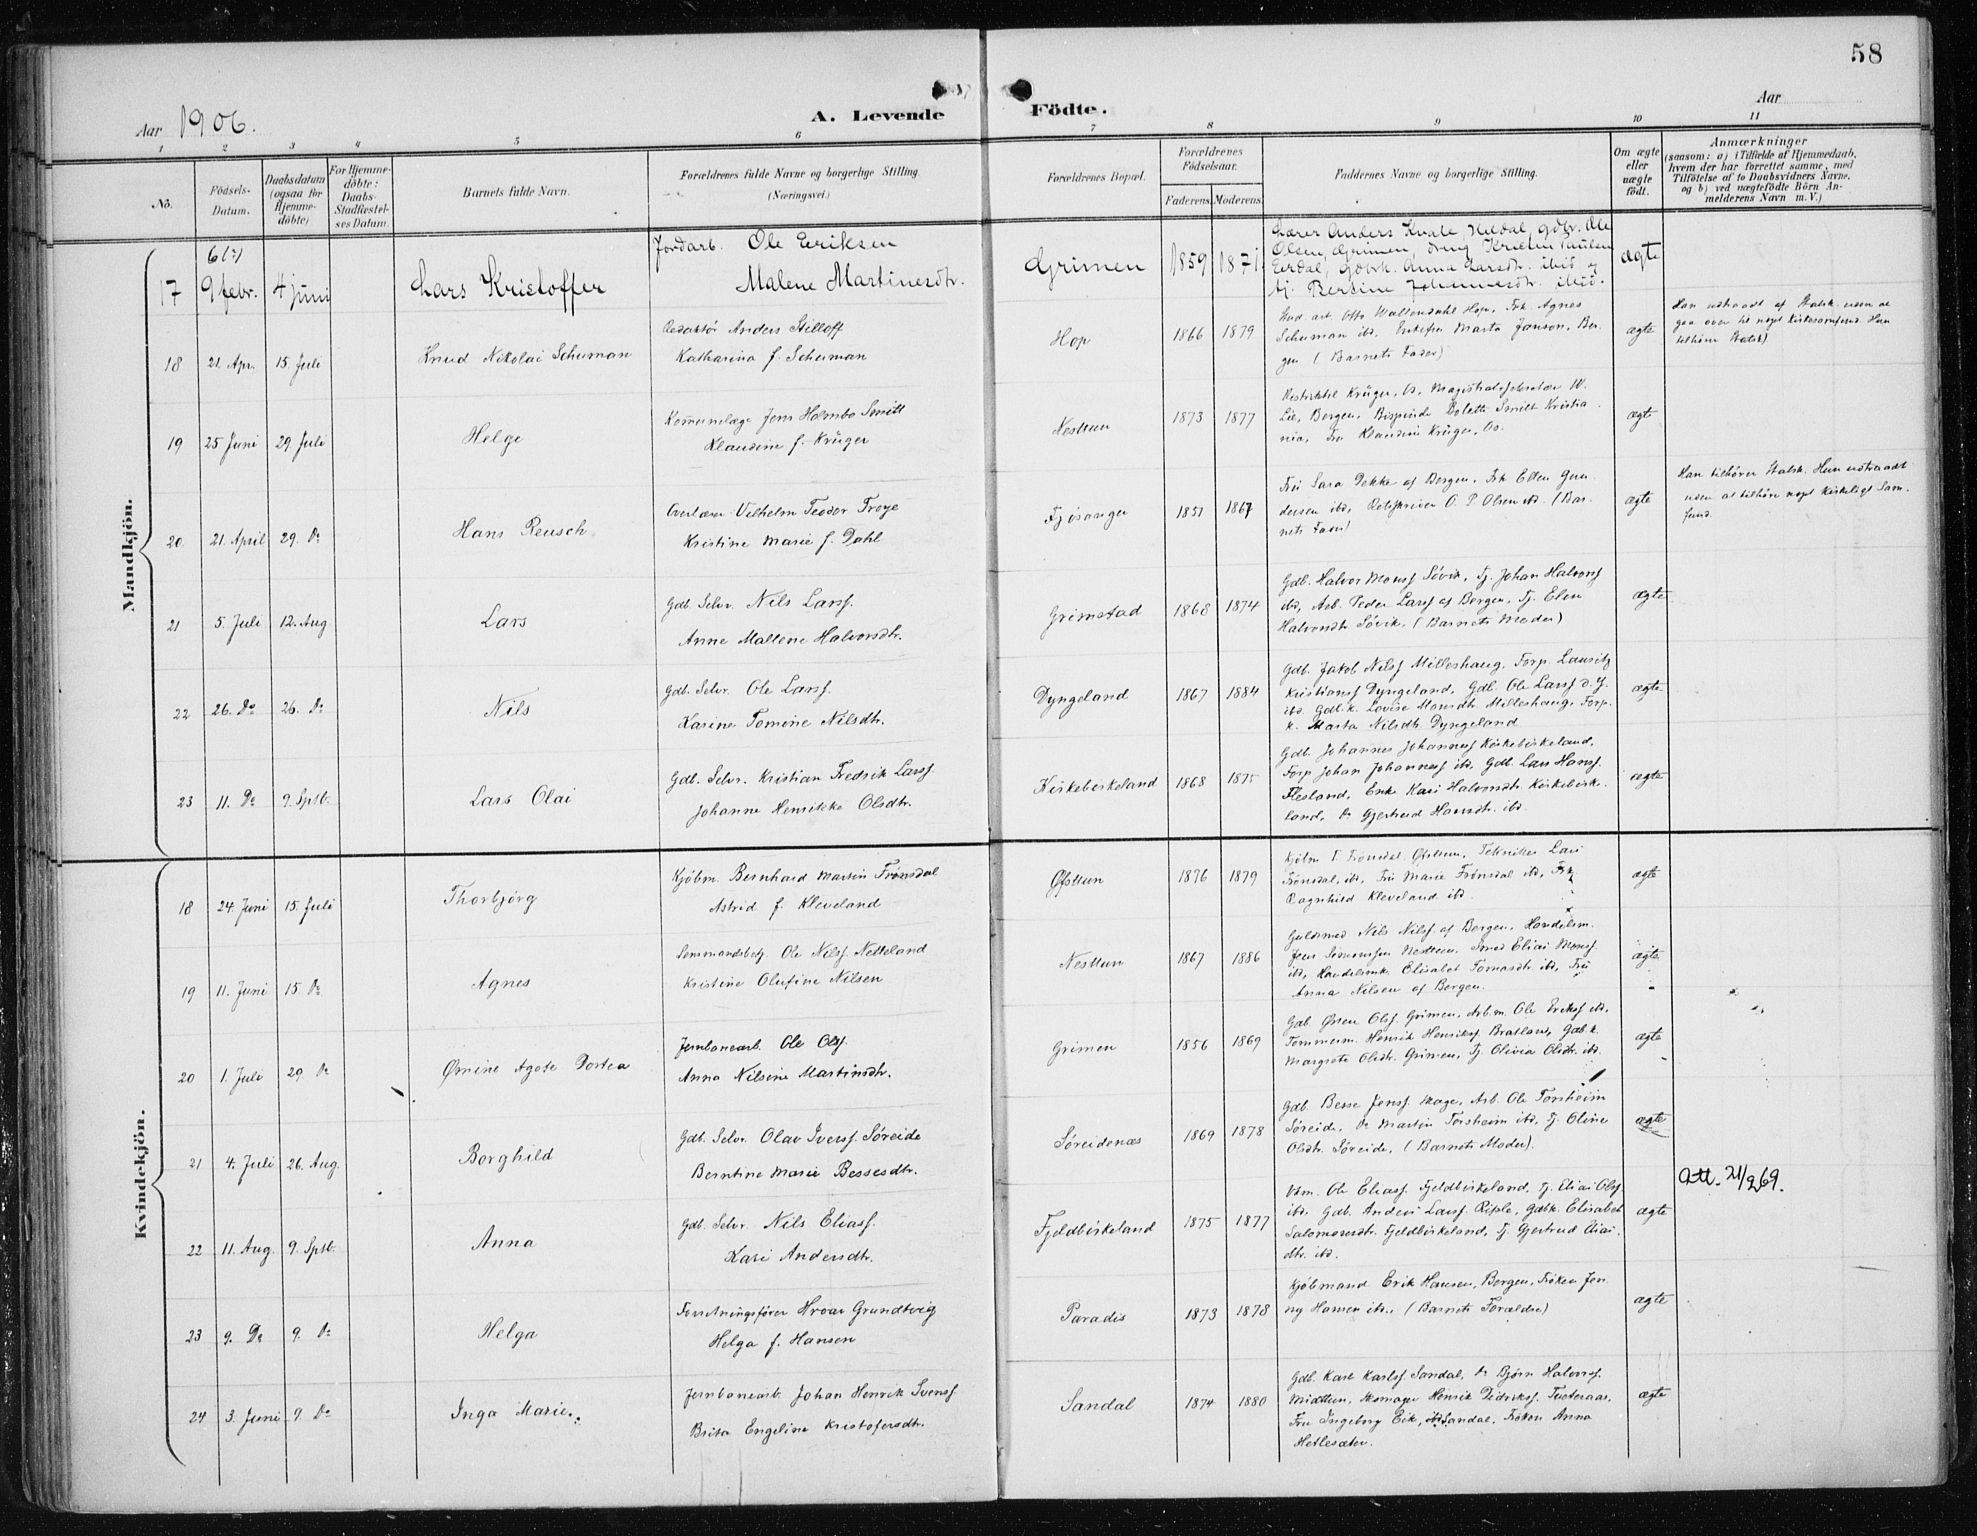 58
Aar 1906.
A. Levende Födte.
Aar
1 2 3 4 5 6 7 8 9 10 11
No.
Födsels-Datum.
Daabsdatum (ogsaa for Hjemme-döbte)
For Hjemme-döbte: Daabs-Stadfæstel-ses Datum.
Barnets fulde Navn.
Forældrenes fulde Navne og borgerlige Stilling. (Næringsvei.)
Forældrenes Bopæl.
Forældrenes Födselsaar.
Faderens. Moderens.
Faddernes Navne og borgerlige Stilling.
Om ægte eller uægte födt.
Anmærkninger
(saasom: a) i Tilfælde af Hjemmedaab,
hvem der har forrettet samme, med
Tilföielse af to Daabsvidners Navne,
og b) ved uægtefödte Börn An-
melderens Navn m. V.)
Mandkjön.
6(?)
17 9 febr. 4 juni Lars Kristoffer
Jordarb. Ole Eriksen
Malene Martinesdtr.
Grimen 1859 1871
Lærer Anders Kvale, Hildal, gdbr. Ole
Olsen, Grimen, dreng Kristen Paulsen
Eerdal, Gdbrk. Anna Larsdtr. ibid og
tj. Bertine Johannesdtr. ibid.
ægte
18 21. Apr. 15. Juli Knud Nikolai Schuman
Redaktør Anders Stilloff
Katharina f. Schuman
Hop 1866 1879
Otto Wallendahl Hop, Frk. Agnes
Schuman ibd, Enkefru Marta Janson, Ber-
gen (Barnets Fader)
ægte
Han udtraadt af Statsk. uden at
gaa over til noget Kirkesamfund. Hun
tilhører Statsk)
19 25 Juni 29. Juli Helge
Kommunelæge Jens Holmbo Smitt
Klaudine f. Krüger
Nesttun 1873 1877
Distriktsl Krüger, Os, Magistratssekretær W.
Lie, Bergen, Bispinde Bolette Smitt Kristia-
nia, Fru Klaudine Krüger, Os.
ægte
20 21. April 29. Do Hans Reusch
Overlærer Vilhelm Teodor Troye
Kristine Marie f. Dahl
Fjøsanger 1851 1867
Fru Sara Dekke af Bergen, Frk Ellen Gun-
dersen ibd, Retsskriver O. P. Olsen ibd. (Bar-
nets Fader)
ægte
Han tilhører Statsk. Hun udtraadt
uden at tilhøre noget Kirkeligt Sam-
fund.
21 5. Juli 12. Aug Lars
Gdb. Selv. Nils Larsf.
Anne Mallene Halvorsdtr.
Grimstad 1868 1874
Gdb. Halvor Monsf Søvik, Tj. Johan Halvorsf
ibd, Arb. Peder Larsf af Bergen, Tj. Elen
Halvorsdtr Søvik, (Barnets Moder)
ægte
22 26. Do 26. Do Nils
Gdb. Selv. Ole Larsf.
Karine Tomine Nilsdtr.
Dyngeland 1867 1884
Gdb. Jakob Nilsf Milleshaug, Forp. Lauritz
Kristiansf Dyngeland, Gdb. Ole Larsf d. y.
ibd. Gdb.k. Lovise Monsdtr Milleshaug, Forp.
k. Marta Nilsdtr. Dyngeland
ægte
23 11. Do 9. Sptb. Lars Olai
Gdb. Selv. Kristian Fredrik Larsf.
Johanne Henrikke Olsdtr.
Kirkebirkeland 1868 1875
Gdb. Johannes Johannesf Kirkebirkeland,
Forp. Johan Johannesf ibd, Gdb. Lars Hansf.
Flesland, Enke Kari Halvorsdtr. Kirkebirke-
land, Do Gjertrud Hansdtr. ibd.
ægte
Kvindekjön.
18 24. Juni 15. Juli Thorbjørg
Kjøbm. Bernhard Martin Frønsdal
Astrid f. Kleveland
Øfsttun 1876 1879
Kjøbm T. Frønsdal Øfsttun, Tekniker Lars
Frønsdal, ibd, Fru Marie Frønsdal ibd, Frk
Ragnhild Kleveland ibd.
ægte
19 11. Juni 15. Do Agnes
Ole Nilsf. Netteland
Kristine Olufine Nilsen
Nesttun 1867 1886
Guldsmed Nils Nilsf. af Bergen, Handelsm.
Jens Simonsen Nesttun. Smed Eliai Monsf.
ibd, Handelsmk. Elisabet Tomasdtr ibd, Fru
Anna Nilsen af Bergen.
ægte
20 1. Juli 29. Do Ørnine Agote Dortea
Jernbanearb. Ole Olsf.
Anna Nilsine Martinsdtr.
Grimen 1856 1869
Gdb. Østen Olsf. Grimen, Arb.m. Ole Eriksf ibd,
Tømmerm. Henrik Henriksf Bratland, Gdb.k.
Margrete Olsdtr. Grimen, Tj. Olivia Olsdtr. ibd.
ægte
21 4. Juli 26. Aug. Borghild
Gdb. Selv. Olav Iversf. Søreide
Berntine Marie Bessesdtr.
Søreidenæs 1869 1878
Gdb. Besse Jensf. Skage, Arb. Ole Torsheim
Søreide, Do Martin Torsheim ibd, Tj. Oline
Olsdtr. Søreide, (Barnets Moder).
ægte
22 11. Aug. 9. Sptb. Anna
Gdb. Selv. Nils Eliasf.
Kari Andersdtr.
Fjeldbirkeland 1875 1877
Ole Eliasf. Fjeldbirkeland, Tj. Eliai Olsf
ibd. Gdb. Anders Larsf. Riple, Gdbk. Elisabet
Salomonsdtr. Fjeldbirkeland, Tj. Gjertrud Eliai-
dtr. ibd.
ægte
Att. 21/2 69.
23 9. Do 9. Do Helga
Forretningsfører Hroar Grundtvig
Helga f. Hansen
Paradis 1873 1878
Kjøbmand Erik Hansen, Bergen, Frøken Jen-
ny Hansen ibd., (Barnets Forældre)
ægte
24 3. Juni 9 Do Inga Marie
Jernbanearb. Johan Henrik Svensf.
Brita Engeline Kristofersdtr.
Sandal 1874 1880
Gdb. Karl Karlsf Sandal, Do Bjørn Halvorsf.
Midttun, Skomager Henrik Didriksf. Tveteraas,
Fru Ingeborg Eik, Sandal, Frøken Anna
Hetlesæter.
ægte